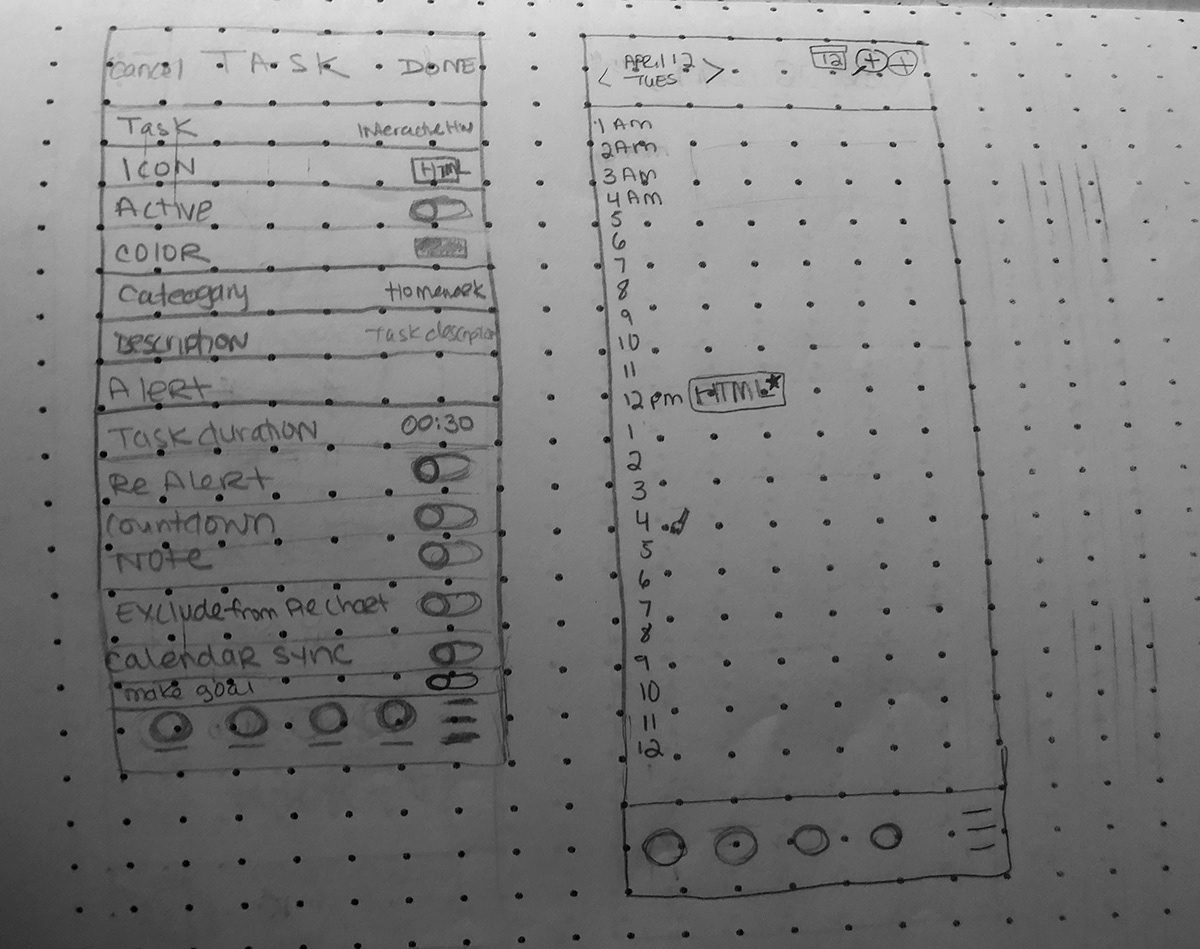 cancel TASK DONE
Task Interactive HW
ICON HTML
Active
COLOR
Cateogary Homework
Description Task description
Alert
Task duration 00:30
Re Alert
countdown
Note
Exclude from Pie Chart
calendar sync
make goal
< APRIL 12 TUES > 12 + +
1 Am
2 Am
3 Am
4 Am
5
6
7
8
9
10
11
12 pm HTML
1
2
3
4
5
6
7
8
9
10
11
12